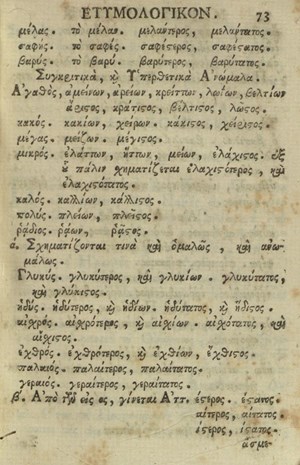 ΕΤΥΜΟΛΟΓΙΚΟΝ. 73
μέλας. τὸ μέλαν. μελανῶτερος, μελανώτατος.
σαφής. τὸ σαφές. σαφέςερος, σαφέςατος.
βαρύς. τὸ βαρύ. βαρύτερος, βαρύτατος.
Συγκριτικὰ, καὶ Ὑπερθετικὰ Ἀνώμαλα.
Ἀγαθὸς, ἀμείνων, ἀρείων, κρείττων, λωΐων, βελτίων
ἄριςος, κράτιςος, βέλτιςος, λῶςος.
κακός. κακίων, χείρων. κάκιςος, χείριςος.
μέγας. μείζων. μέγιςος.
μικρός. ἐλάττων, ἥττων, μείων, ἐλάχιςος. ἐξ
οὗ πάλιν χηματίζεται ἐλαχιςότερος, καὶ
ἐλαχιςότατος.
καλός. καλλίων, κάλλιςος.
πολύς. πλείων, πλεῖςος.
ῥᾴδιος. ῥᾴων, ῥᾷςος.
α. Σχηματίζονται τινὰ καὶ ὁμαλῶς, καὶ ἀνω-
μάλως.
Γλυκύς. γλυκύτερος, καὶ γλυκίων. γλυκύτατος,
καὶ γλύκιςος.
ἡδύς. ἡδύτερος, καὶ ἡδίων. ἡδύτατος, καὶ ἥδιςος.
αἰχρός. αἰχρότερος, καὶ αἰχίων. αἰχρότατος, καὶ
αἴχιςος.
ἐχθρός. ἐχθρότερος, καὶ ἐχθίων, ἔχθιςος.
παλαιός. παλαίτερος, παλαίτατος.
γεραιός. γεραίτερος, γεραίτατος.
β. Ἀπὸ τῶν εἰς ος, γίνεται Ἀττ. έςερος. έςατος.
αίτερος, αίτατος.
ίςερος, ίςατος.
ἄσμε-